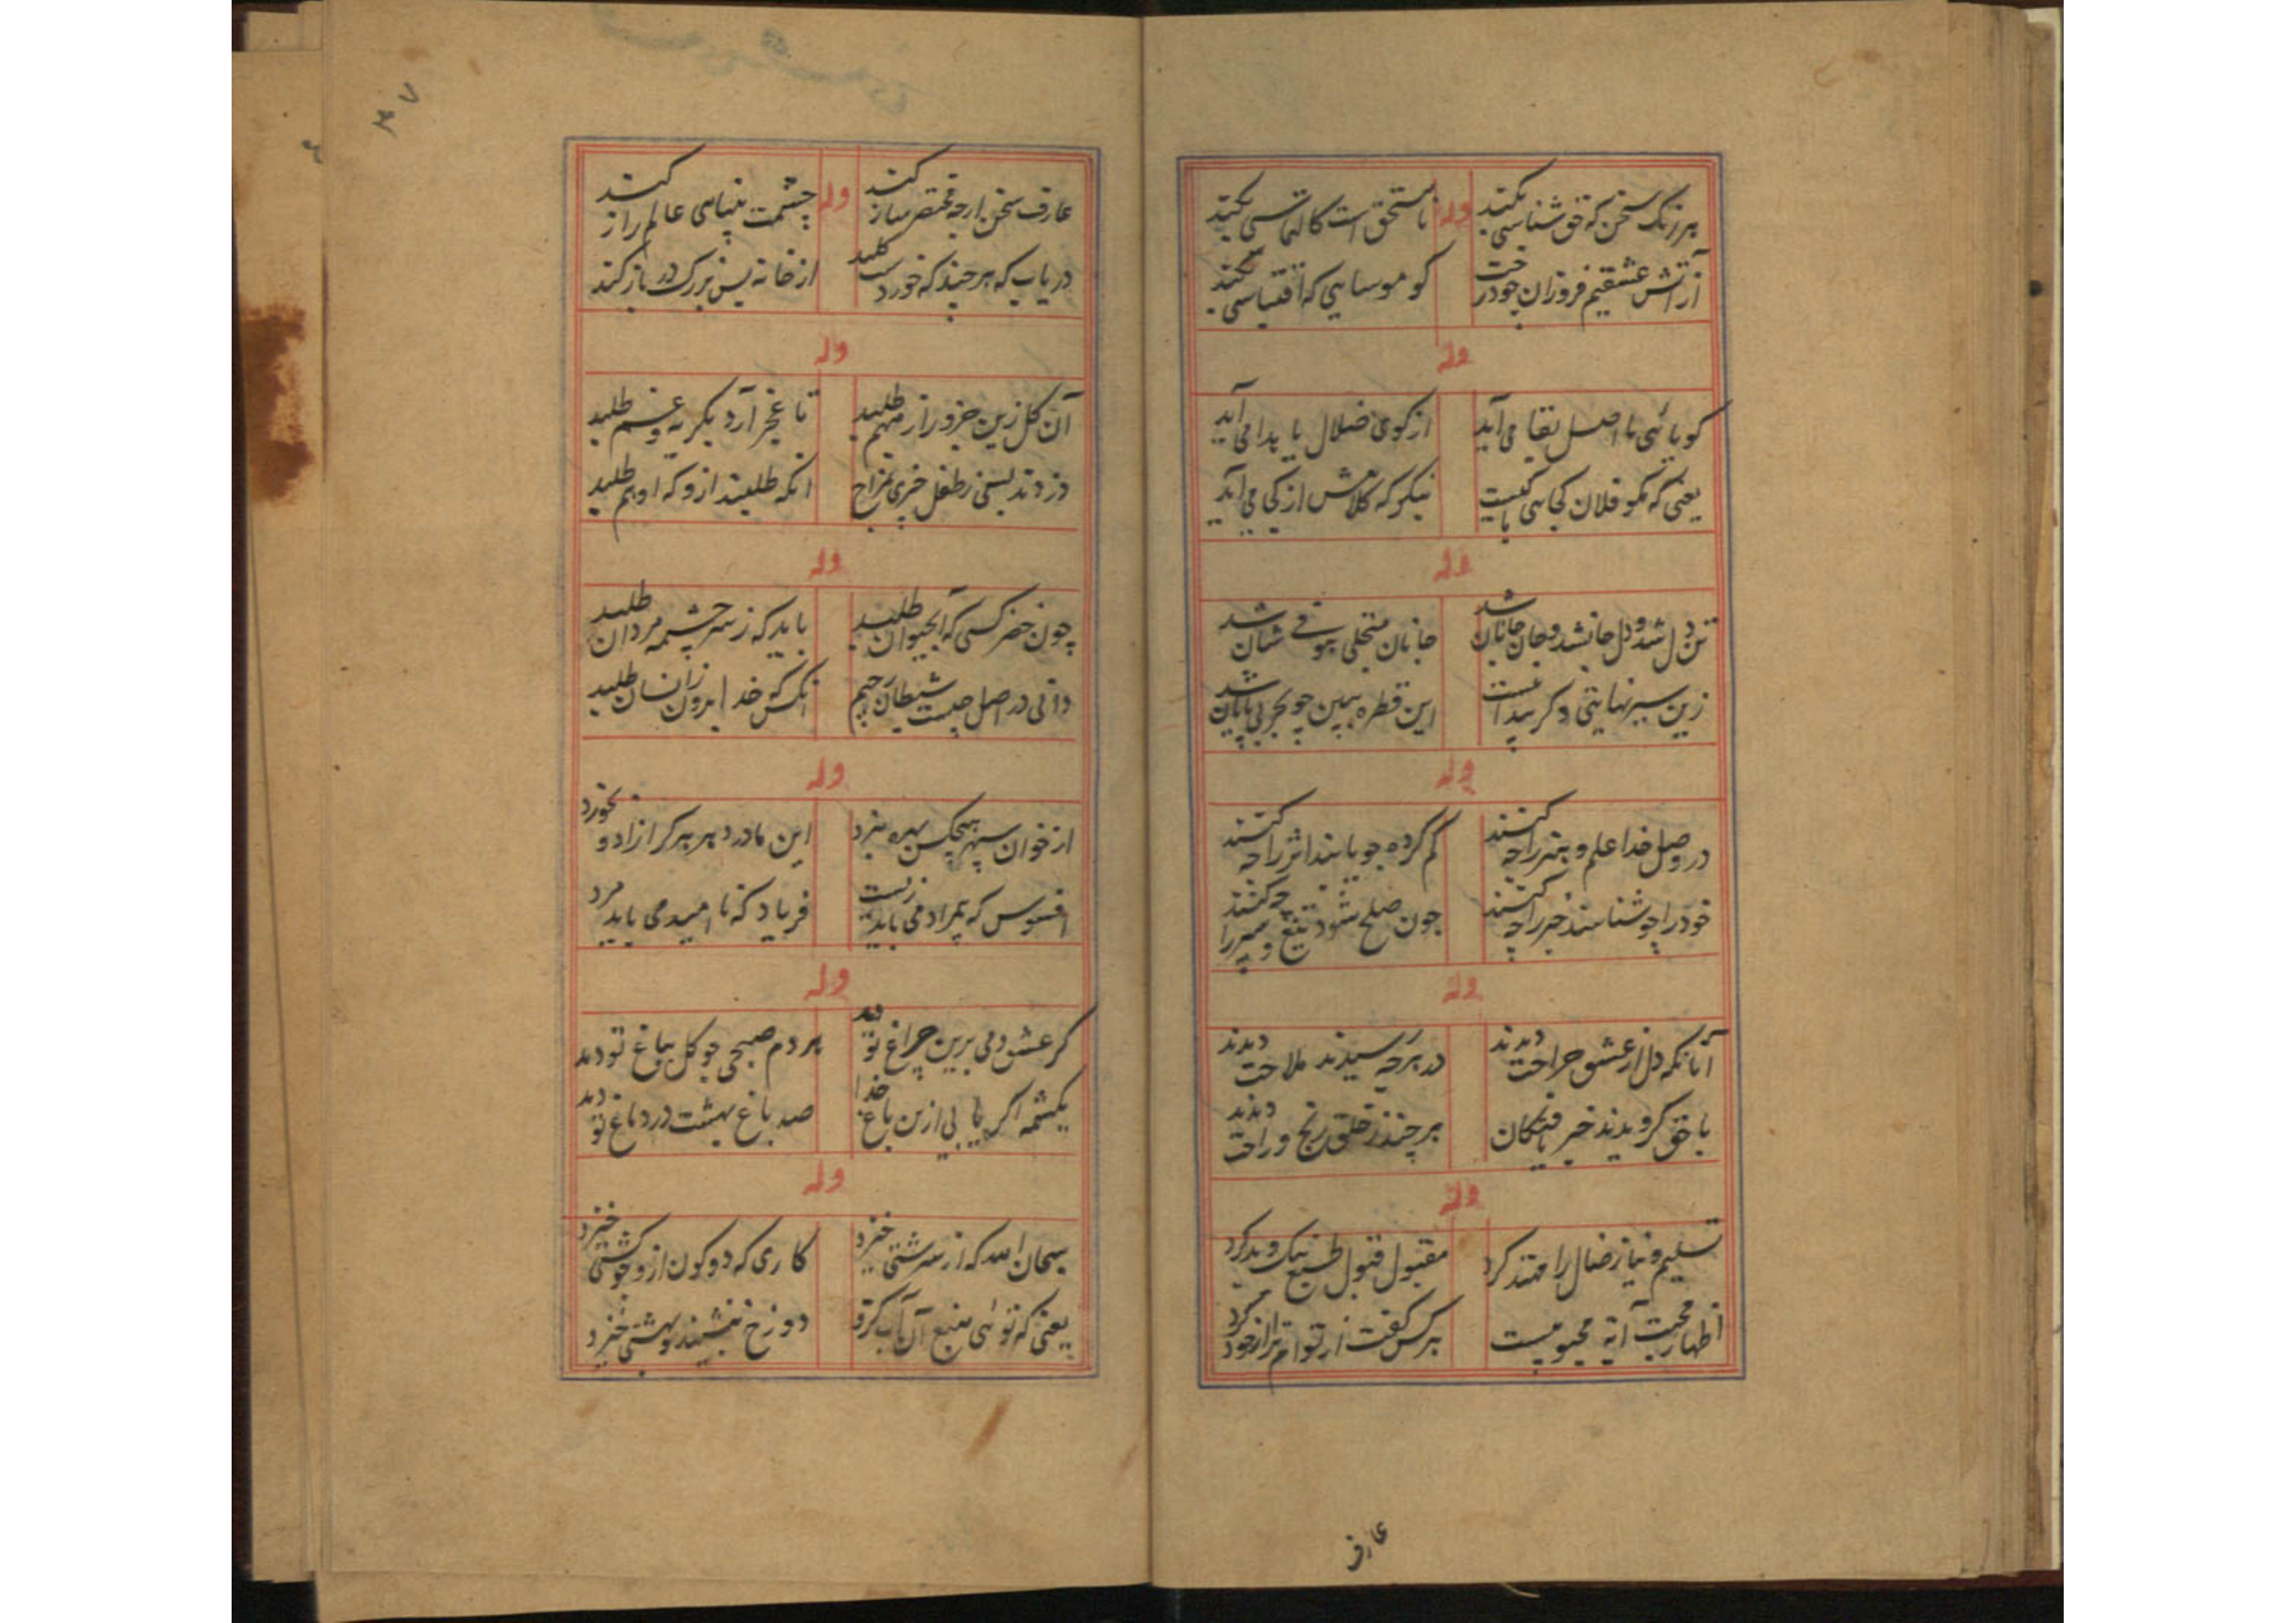 هر زنک سخن که حق شناسی نکند
نا مستحق است کالتماسی نکند
از آتش عشقیم فروزان چو درخت
کو موسایی که اقتباسی نکند
وله
گویا نئی با اصل بقا می آید
از کوی ضلال با پدا می آید
یعنی که مگو فلان کجایی با کیست
نیکو که کلامش از کجا می آید
وله
تن دل شد و دل جان شد و جان جانان شد
جانان متجلی شد
زین سیر نهایتی دکر پیدا نیست
این قطره ببین چو بحر بی پایان شد
وله
در وصل خدا علم و هنر را چه کنند
کم کرده چو یابند اثر را چه کنند
خود را چو شناسند خبر را چه کنند
چون صلح شود تیغ و سپر را چه کنند
وله
آنانکه دل از عشق جراحت دیدند
در هر چه رسیدند ملاحت دیدند
با حق کرویدند خبر یافتکان
هر چند ز خلق رنج و راحت دیدند
وله
تسلیم و نیاز ضال را مهتد کرد
مقبول قبول طبع نیک و بد کرد
اظهار محبت آیه محبوبیست
هر کس گفت از توام از خود کرد
عارف
عارف سخن ار چه مختصر ساز کند
وله
چشمت بتپاسی عالم راز کند
دریاب که هر چند که خوردست کلید
از خانه بس بزرک در باز کند
وله
آن کل زین جزو راز مبهم طلبد
تا عجز آرد بکریه و غم طلبد
دزدند بسی ز طفل خری بمزاح
انکه طلبند ازو که او هم طلبد
وله
چون خضر کسی که آبحیوان طلبد
باید که ز سرچشمه مردان طلبد
دانی در اصل چیست شیطان رجیم
انکس که خدا برون ز انسان طلبد
وله
از خوان سپهر هیچکس بهره نبرد
این مادر دهر هر کرا زاد و بخورد
افسوس که بمراد می باید زیست
فریاد که نا امید می باید مرد
وله
کر عشق دمی برین چراغ تو دمد
هر دم صبحی چو کل بباغ تو دمد
یکشمه اکر یابی ازین باغ خدا
صد باغ بهشت در دماغ تو دمد
وله
سبحان الله که از سرشتی خیزد
کاری که دو کون ازو چو کشتی خیزد
یعنی که توئی منبع آن آب کزو
دوزخ بنشیند و بهشتی خیزد